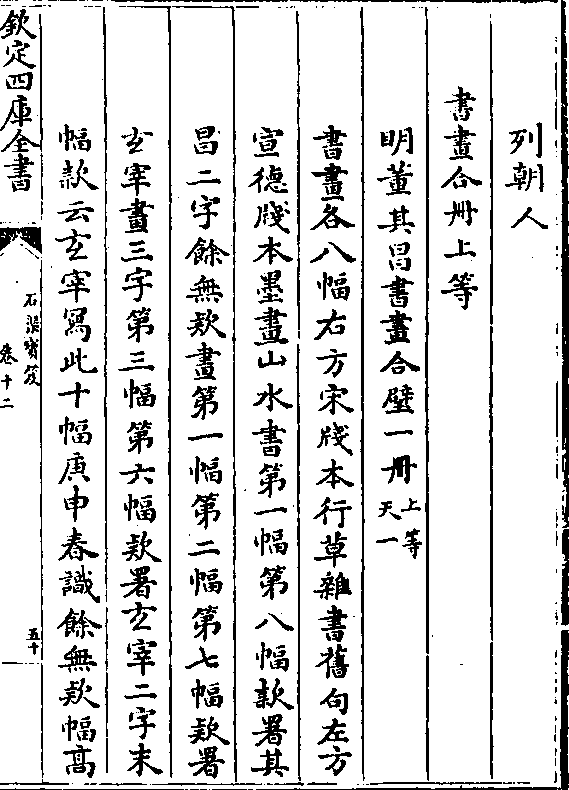 列朝人
書畫合冊上等
明董其昌書畫合璧一冊上等天一
書畫各八幅右方宋牋本行草雜書舊句左方
宣德牋本墨畫山水書第一幅第八幅款署其
昌二字餘無款畫第一幅第二幅第七幅款署
玄宰畫三字第三幅第六幅款署玄宰二字末
幅款云玄宰寫此十幅庚申春識餘無款幅高
欽定四庫全書
石渠寳笈
卷十二
五十